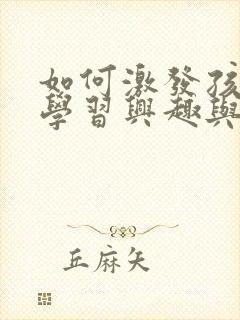 如何激發孩
學習興趣與
丘麻矢